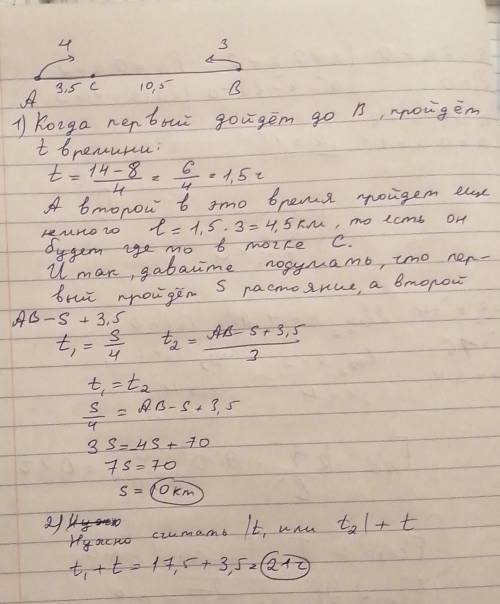 4 3
3,5 C 10,5
A B
1) Когда первый дойдёт до B, пройдёт
t времини:
t = 14-8/4 = 6/4 = 1,5 ч
А второй в это время пройдет еще
немного l = 1,5 · 3 = 4,5 км, то есть он
будет где то в точке C.
И так, давайте подумать, что пер-
вый пройдёт S растояние, а второй
AB-S + 3,5
t₁ = S/4 t₂ = AB-S+3,5/3
t₁ = t₂
S/4 = AB-S+3,5
3S = 4S + 70
7S = 70
S = 10 км
2) Нужно
Нужно считать |t₁ или t₂| + t
t₁ + t = 17,5 + 3,5 = 21 ч